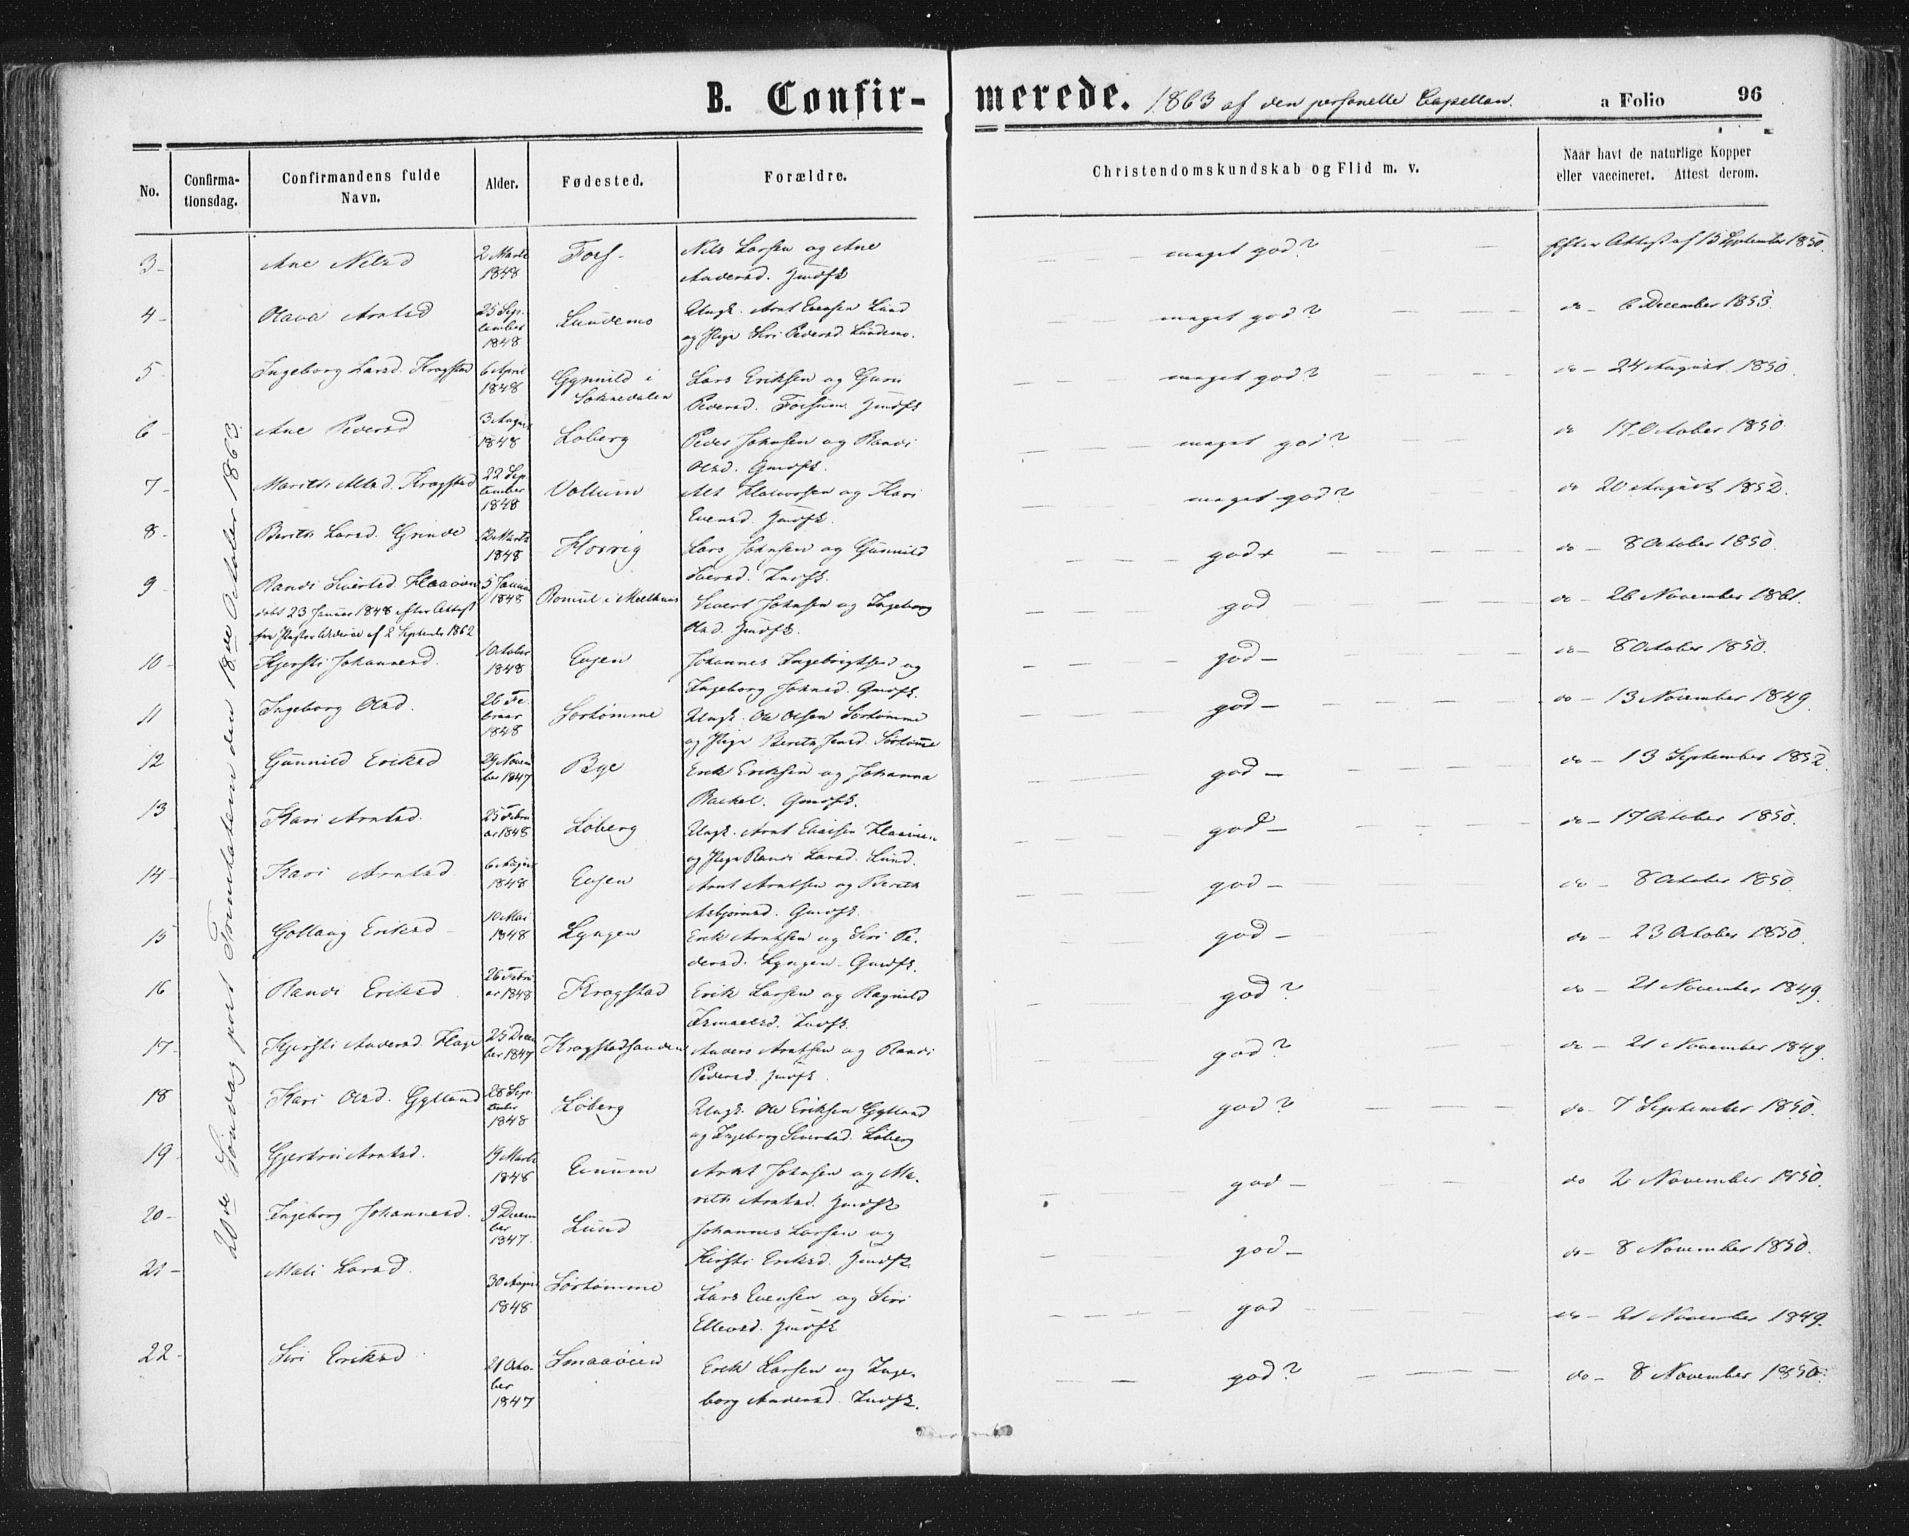 B. Confir- merede. 1863 af den personelle Capellan. a Folio 96
No. Confirma- tionsdag. Confirmandens fulde Navn. Alder. Fødested. Forældre. Christendomskundskab og Flid m. v. Naar havt de naturlige Kopper eller vaccineret. Attest derom.
20de Søndag post Trinitatem den 18de October 1863.
3- Ane Nilsd 2 Marts 1848 Fors- Nils Larsen og Ane Andersd. Gmdfk meget god? Efter Attest af 15 September 1850.
4- Olava Arntsd 25 September 1848 Lundemo Ungk. Arnt Evensen Lund og Pige Siri Pedersd Lundemo. meget god? do - 6 December 1853.
5- Ingeborg Larsd. Kragstad 6 April 1848 Gynnild i Soknedalen Lars Eriksen og Guru Pedersd. Forsum. Gmdfk meget god? do - 24 August 1850.
6- Ane Pedersd 3 August 1848 Løberg Peder Johnsen og Randi Olsd. Gmdfk. meget god? do 17 October 1850.
7- Marith Alsd. Kragstad 22 September 1848 Vollum Als Halvorsen og Kari Evensd. Gmdfk. meget god? do 20 August 1852.
8- Berith Larsd. Grinde 12 Marts 1848 Horrig Lars Johnsen og Gunnild Iversd. Indfk. god+ do - 8 October 1850.
9- Randi Sivertsd. Flaaøien 5 Januar 1848 Romul i Meelhuus Sivert Johnsen og Ingeborg Olsd. Gmdfk. god do - 26 November 1861.
døbt 23 Januar 1848 efter Attest fra Pastor af 2 September 1862
10- Kjersti Johannesd. 1 October 1848 Eusen Johannes Ingebrigtsen og Ingeborg Johnsd. Gmdfk. god- do - 8 October 1850.
11 Ingeborg Olsd. 26 Februar 1848 Sørtømme Ungk. Ole Olsen Sørtømme og Pige Berith Jensd. Sørtømme god- do - 13 November 1849.
12 Gunnild Eriksd 29 November 1847 Bye Erik Eriksen og Johanna Gmdfk. god- do - 13 September 1852.
13 Kari Arntsd. 25 Februar 1848 Løberg Ungk. Arnt Flaaøien og Pige Randi Larsd. Lund. god- do - 17 October 1850.
14- Kari Arntsd 6 August 1848 Eusen Arnt Arntsen og Berith Asbjørnsd. Gmdfk. god- do - 8 October 1850.
15 Gollaug Eriksd- 10 Mai 1848 Lyngen Erik Arntsen og Siri Pedersd. Lyngen- Gmdfk. god- do - 23 October 1850.
16 Randi Eriksd 26 Februar 1848 Kragstad Erik Larsen og Ragnild Ismaelsd. Indfk. god? do - 21 November 1849.
17- Kjersti Andersd. Hage 25 December 1847 Kragstadsanden Anders Arntsen og Randi Pedersd. Gmdfk. god? do - 21 November 1849.
18 Kari Olsd. Gylland 28 September 1848 Løberg Ungk. Ole Eriksen Gylland og Ingeborg Sivertsd. Løberg god? do - 7 September 1850.
19- Gjertrui Arntsd. 19 Marts 1848 Enum Arnt Johnsen og Marith Arntsd. Gmdfk god- do 2 November 1850.
20- Ingeborg Johannesd. 9 December 1847. Lund Johannes Larsen og Kirsti Eriksd. Gmdfk god- do - 8 November 1850.
21- Mali Larsd. 30 August 1848 Sørtømme Lars Evensen og Siri Ellevsd. Gmdfk god do - 21 November 1849.
22- Siri Eriksd. 21 October 1847 Smaaøien Erik Larsen og Ingeborg Andersd. Indfk. god? do - 8 November 1850.